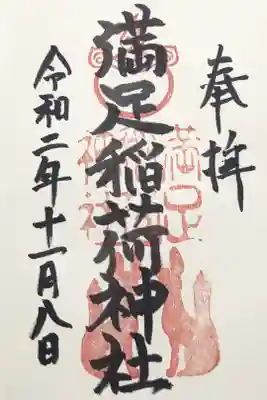 奉拝
満足稲荷神社
令和二年十一月八日
満足
稲荷
神社